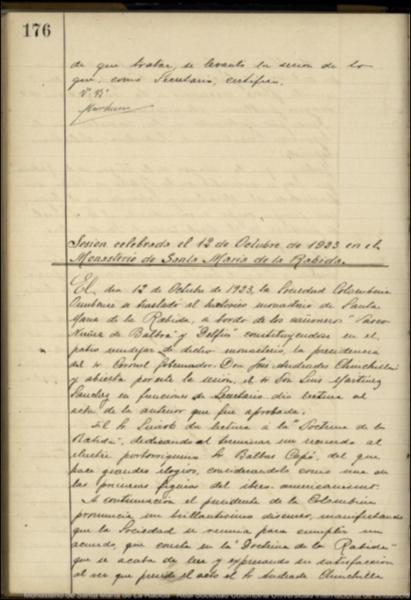 176
de que tratar, se levanta la sesion de lo
que, como Secretario, certifico.
Vº Bº
Sesion celebrada el 12 de Octubre de 1923 en el
Monasterio de Santa Maria de la Rabida.
El dia 12 de Octubre de 1923, la Sociedad Colombina
Onubense se trasladó al histórico monasterio de Santa
Maria de la Rabida, a bordo de los cañoneros "Vasco
Nuñez de Balboa" y "Delfin" constituyendose en el
patio mudejar de dicho monasterio, la presidencia
del Sr Coronel Gobernador Don José Andrades Chinchilla
y abierta por este la sesion, el Sr Don Luis Martinez
Sanchez en funciones de Secretario dio lectura al
acta de la anterior que fue aprobada.
El Sr da lectura a la "Doctrina de la
Rabida", dedicando al terminar un recuerdo al
ilustre portorriqueño Sr Balbas Capó, del que
hace grandes elogios, considerandolo como una de
las primeras figuras del ibero-americanismo.
A continuacion el presidente de la Colombina
pronuncia un brillantisimo discurso, manifestando
que la Sociedad se reunia para cumplir un
acuerdo, que consta en la "Doctrina de la Rabida"
que se acaba de leer y expresando su satisfacción
al ver que preside el acto el Sr Andrade Chinchilla